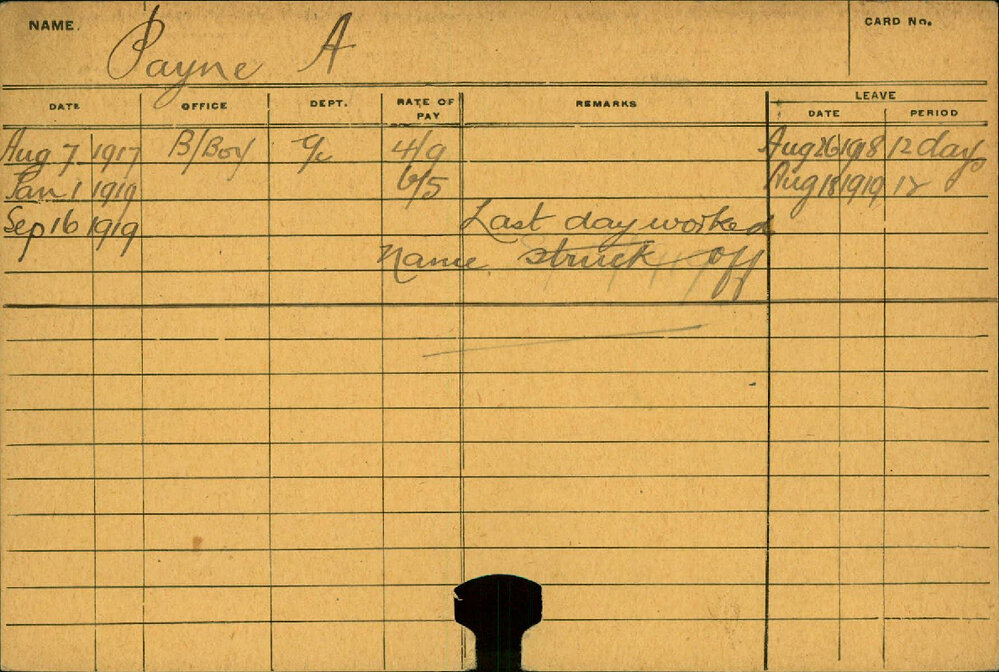 NAME.
Payne A
CARD No.
DATE OFFICE DEPT. RATE OF PAY REMARKS LEAVE
DATE PERIOD
Aug 7 1917 B/Boy 4/9 Aug 26 1918 12 days
Jan 1 1919 6/5 Aug 18 1919 12
Sep 16 1919 Last day worked
Name struck off